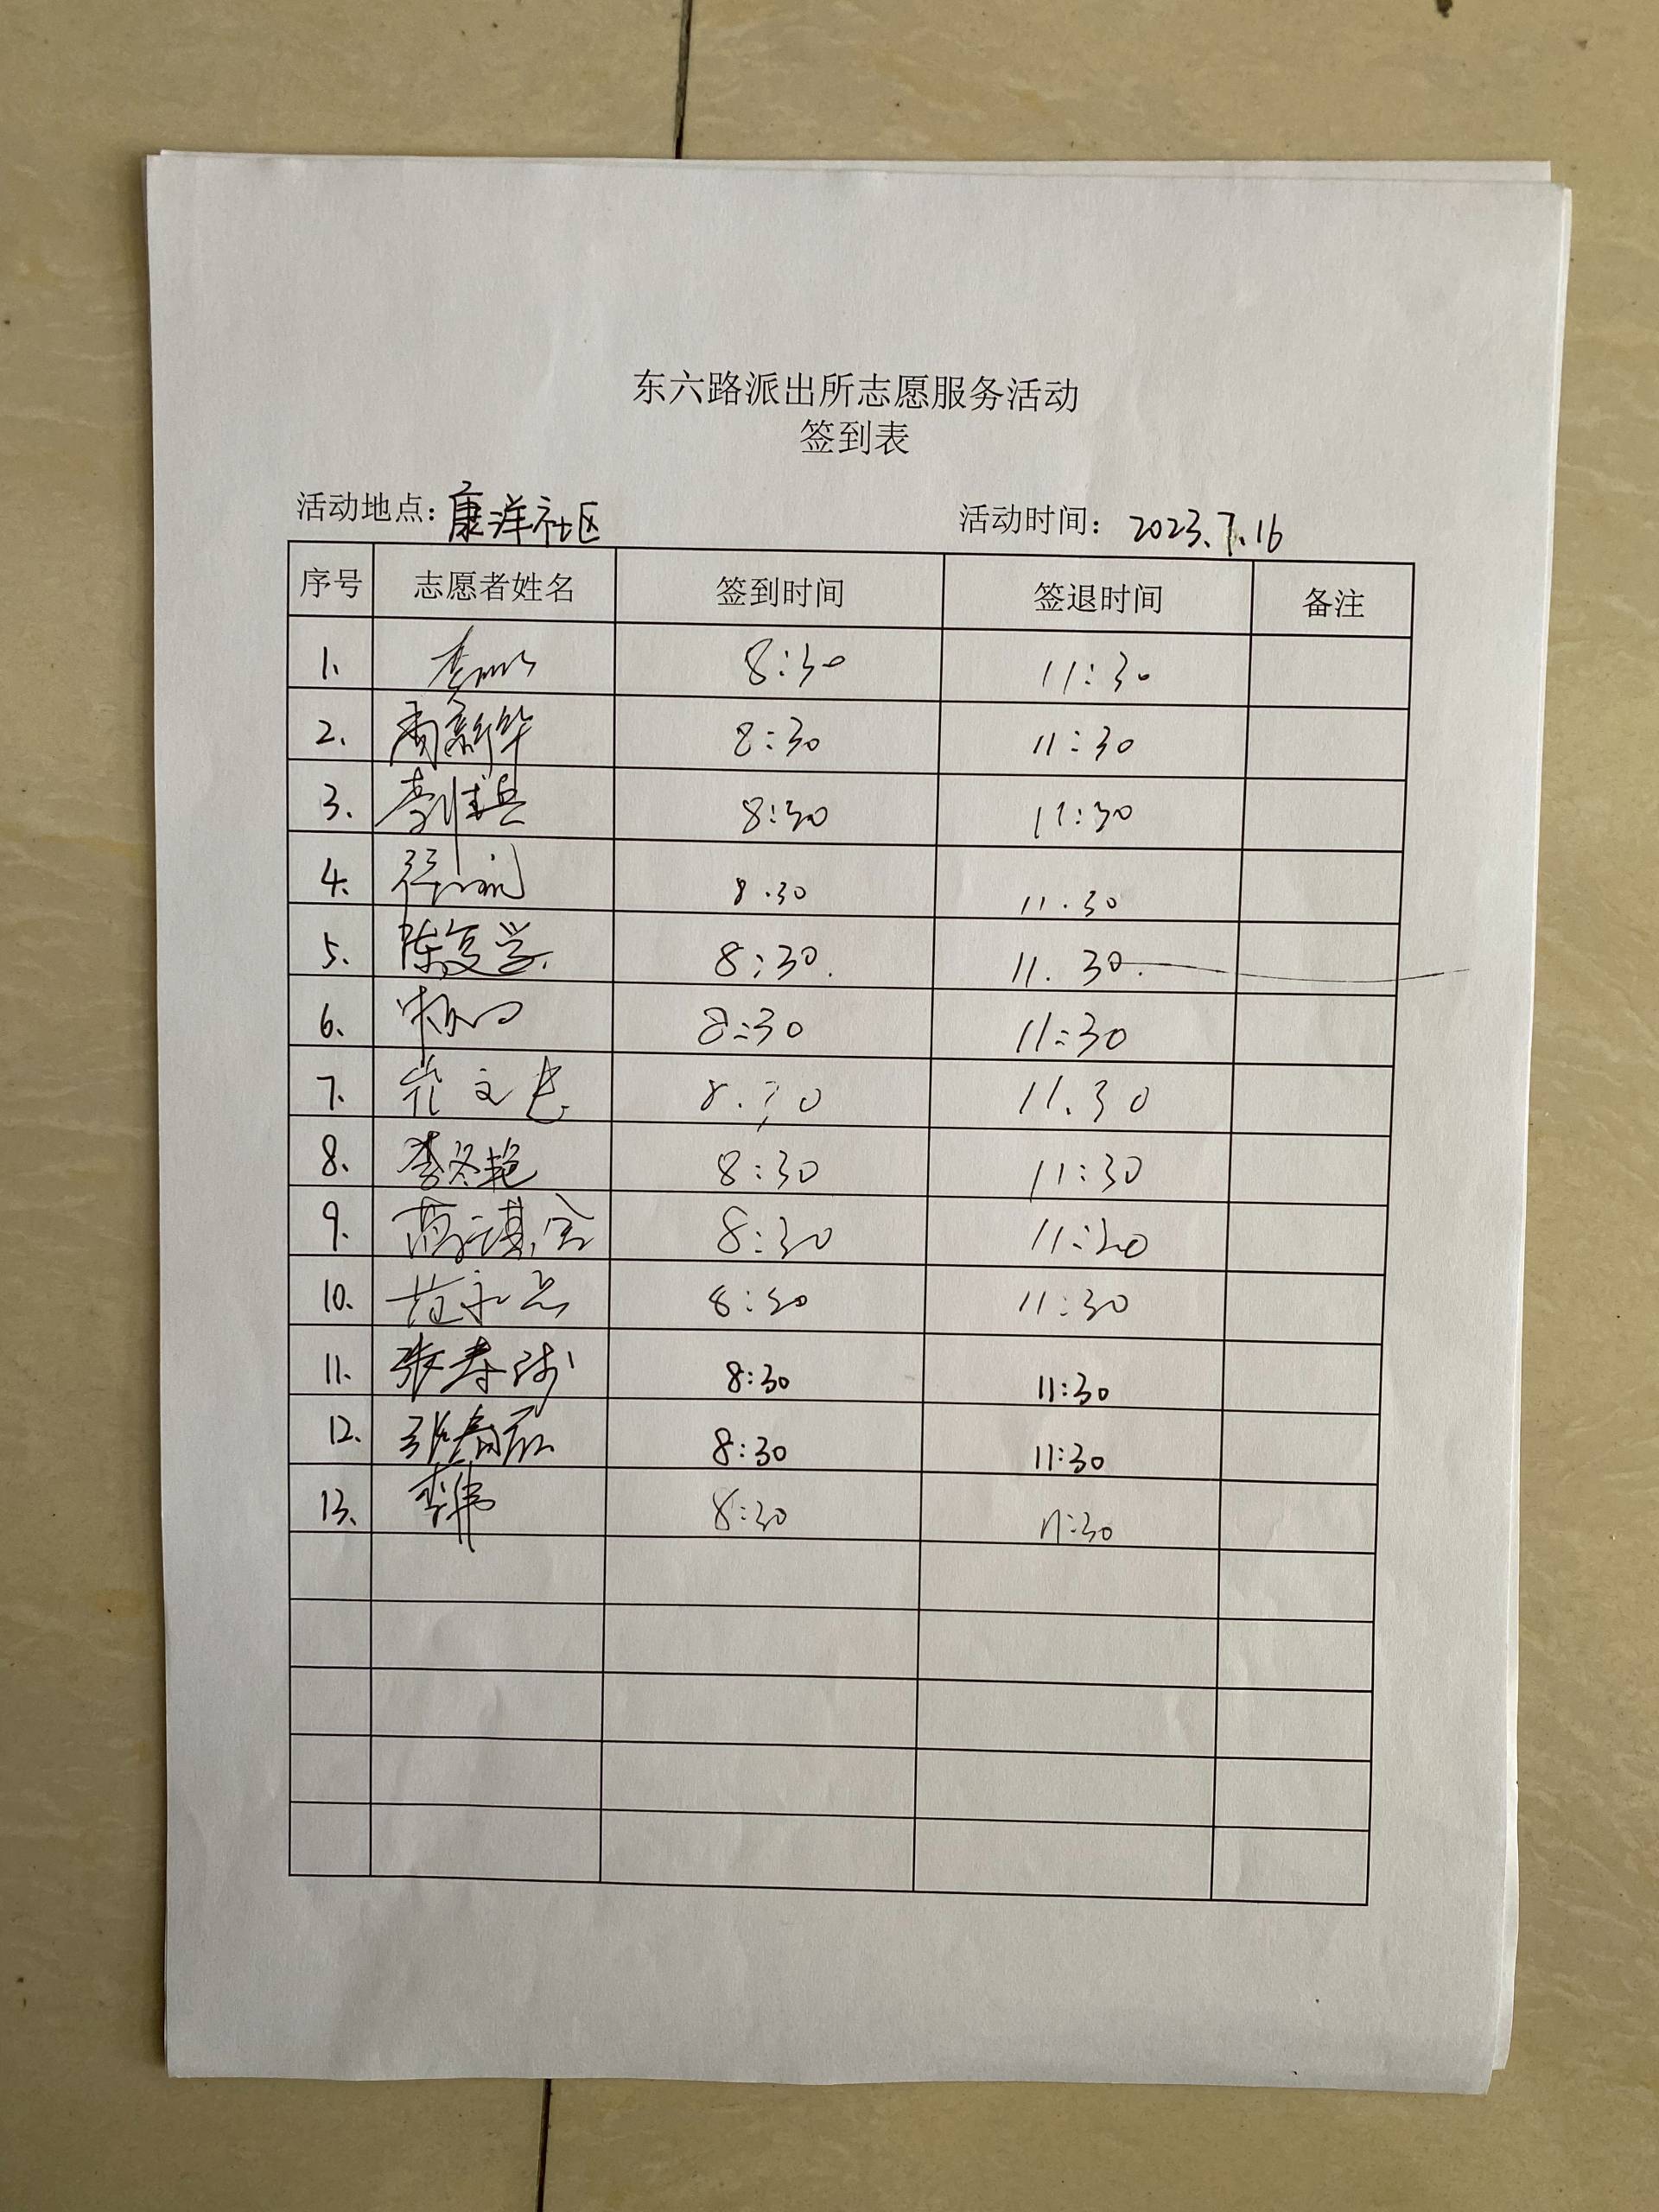 东六路派出所志愿服务活动
签到表
活动地点：康洋社区 活动时间：2023.7.16
序号 志愿者姓名 签到时间 签退时间 备注
1. 8:30 11:30
2. 周新华 8:30 11:30
3. 8:30 11:30
4. 8.30 11.30
5. 陈复学. 8:30. 11.30.
6. 8:30 11:30
7. 8.30 11.30
8. 李冬艳 8:30 11:30
9. 8:30 11:30
10. 8:30 11:30
11. 8:30 11:30
12. 8:30 11:30
13. 李伟 8:30 11:30